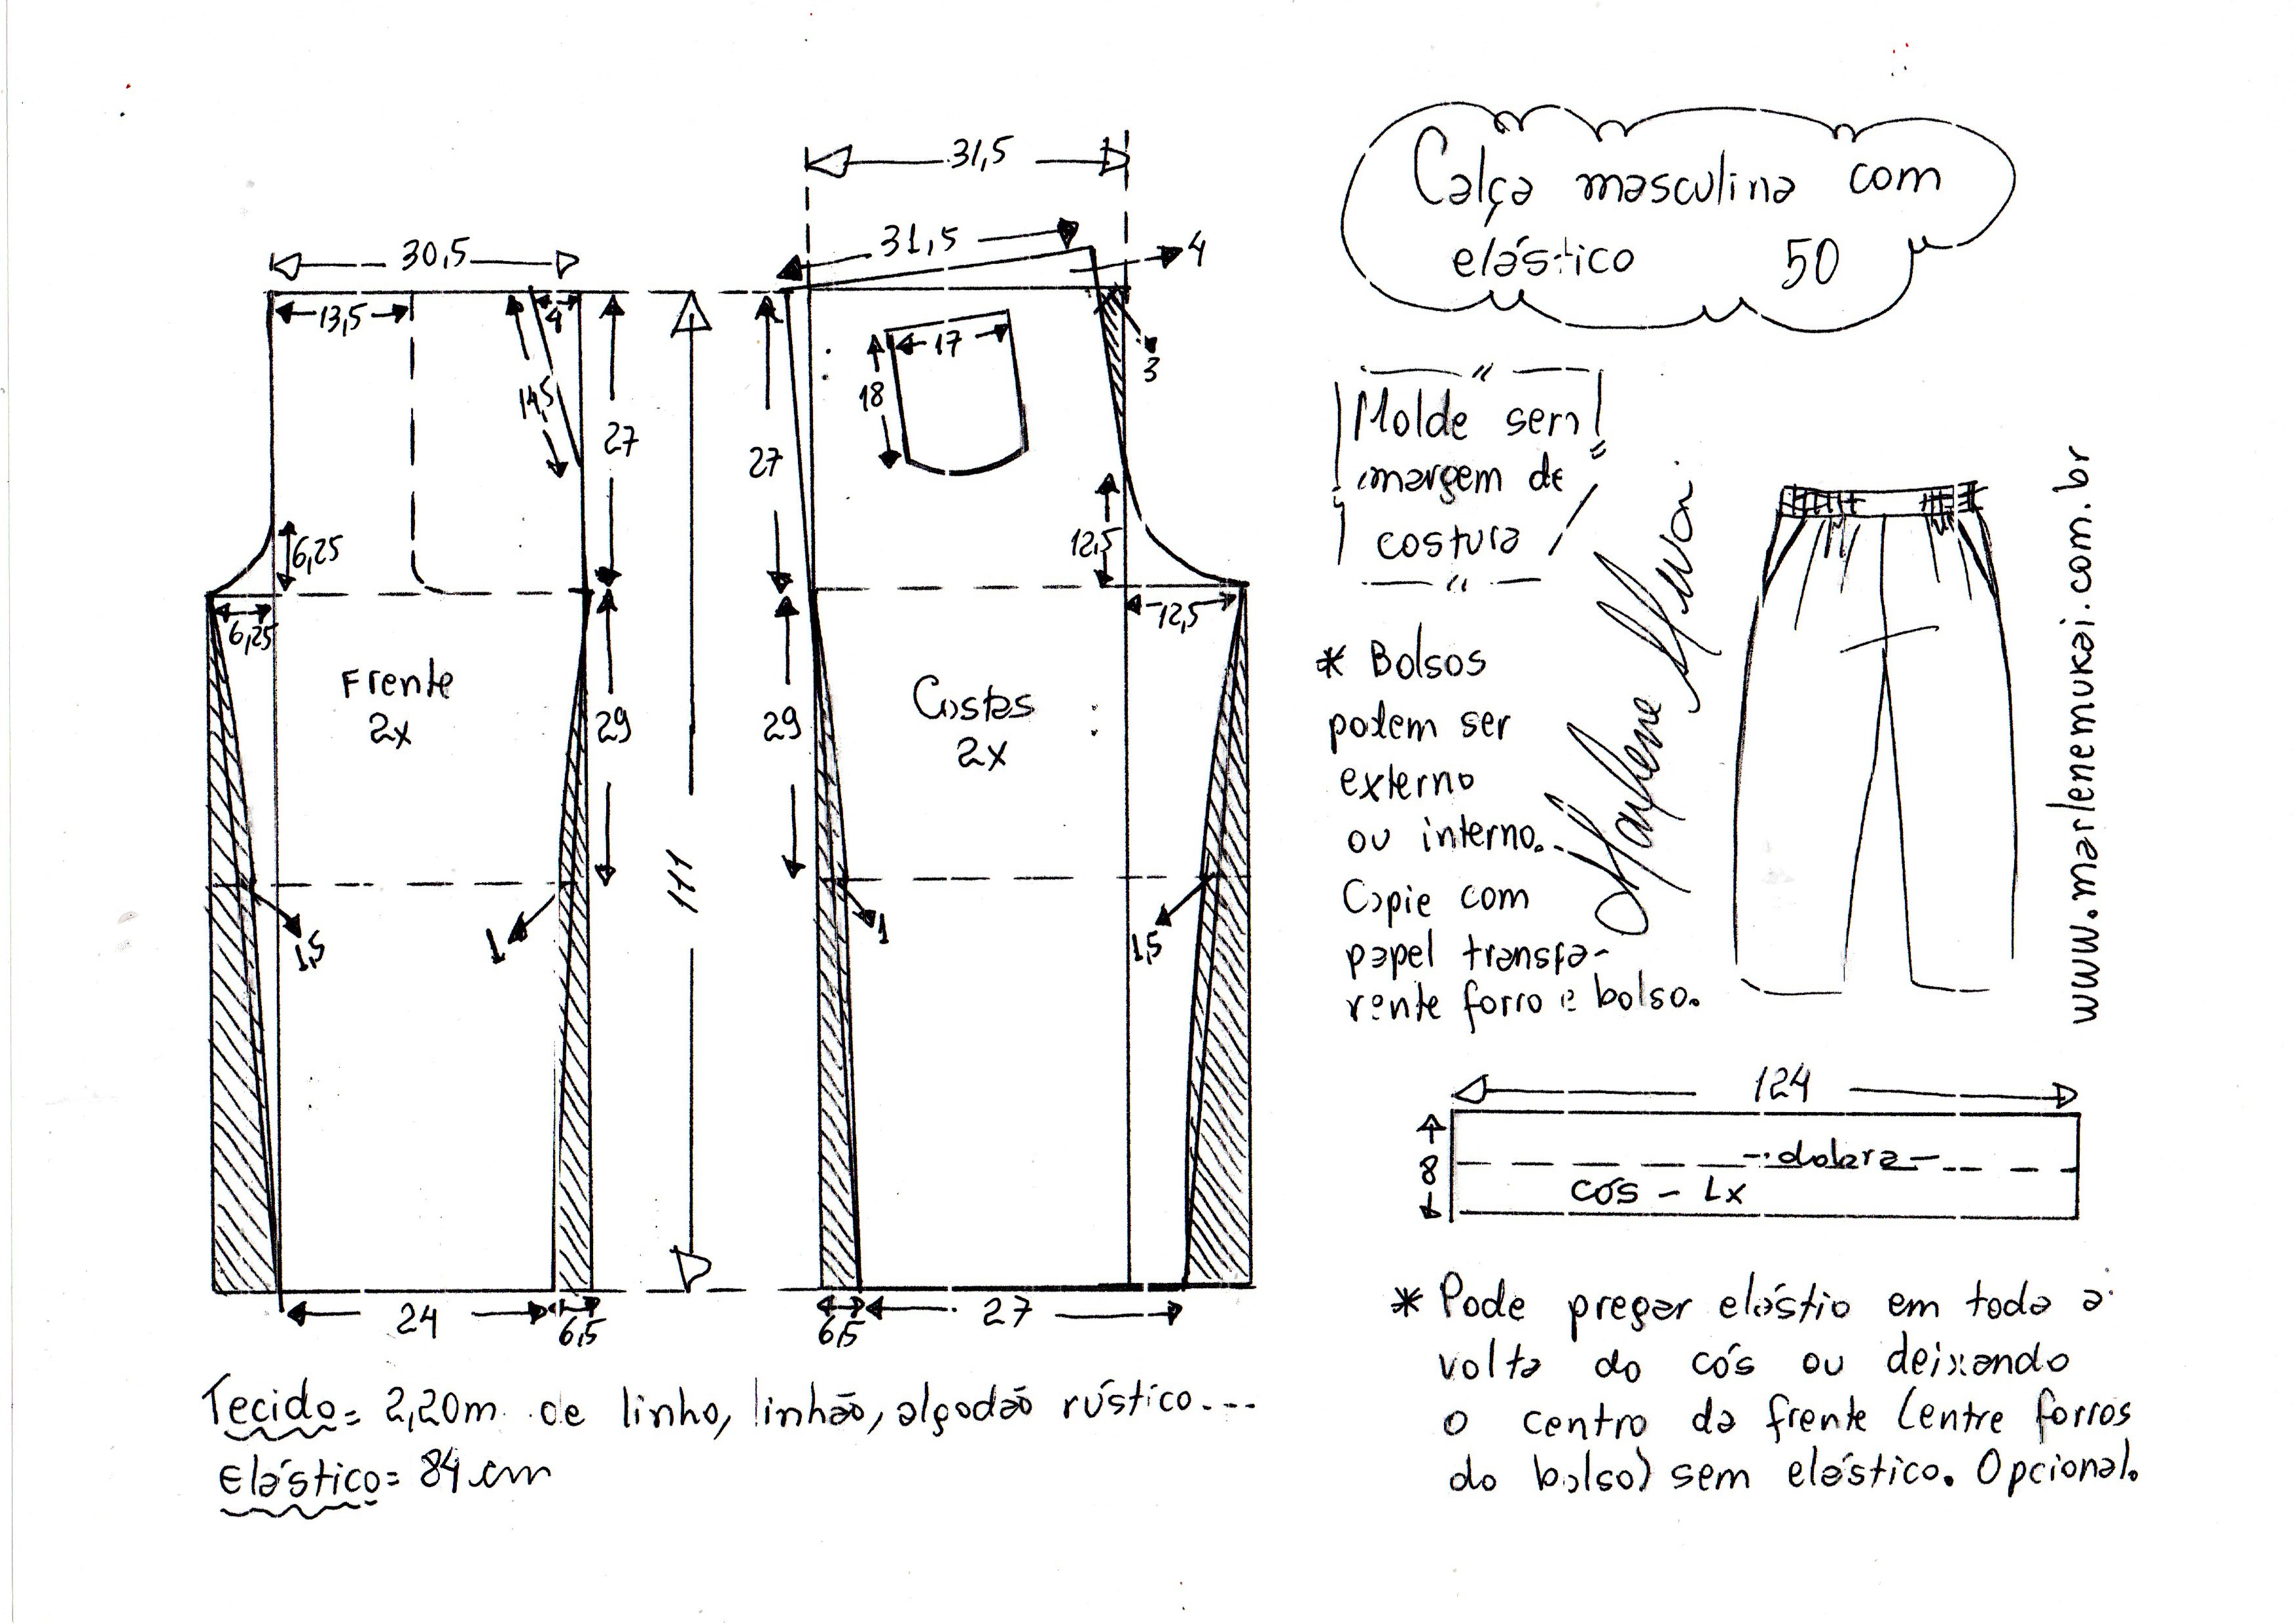 Calça masculina com
elástico 50
31,5
31,5
4
30,5
13,5
4
14,5
27
6,25
6,25
Frente
2x
29
1,5
1
111
24
6,5
3
17
18
27
12,5
12,5
Costas
2x
29
1
1,5
6,5
27
Molde sem
margem de
costura
* Bolsos
podem ser
externo
ou interno.
Copie com
papel transpa-
rente forro e bolso.
Marlene Mukai
www.marlenemukai.com.br
124
8
dobra
cós - 1x
Tecido = 2,20m de linho, linhão, algodão rústico...
Elástico = 84 cm
* Pode pregar elástio em toda a
volta do cós ou deixando
o centro da frente (entre forros
do bolso) sem elástico. Opcional.